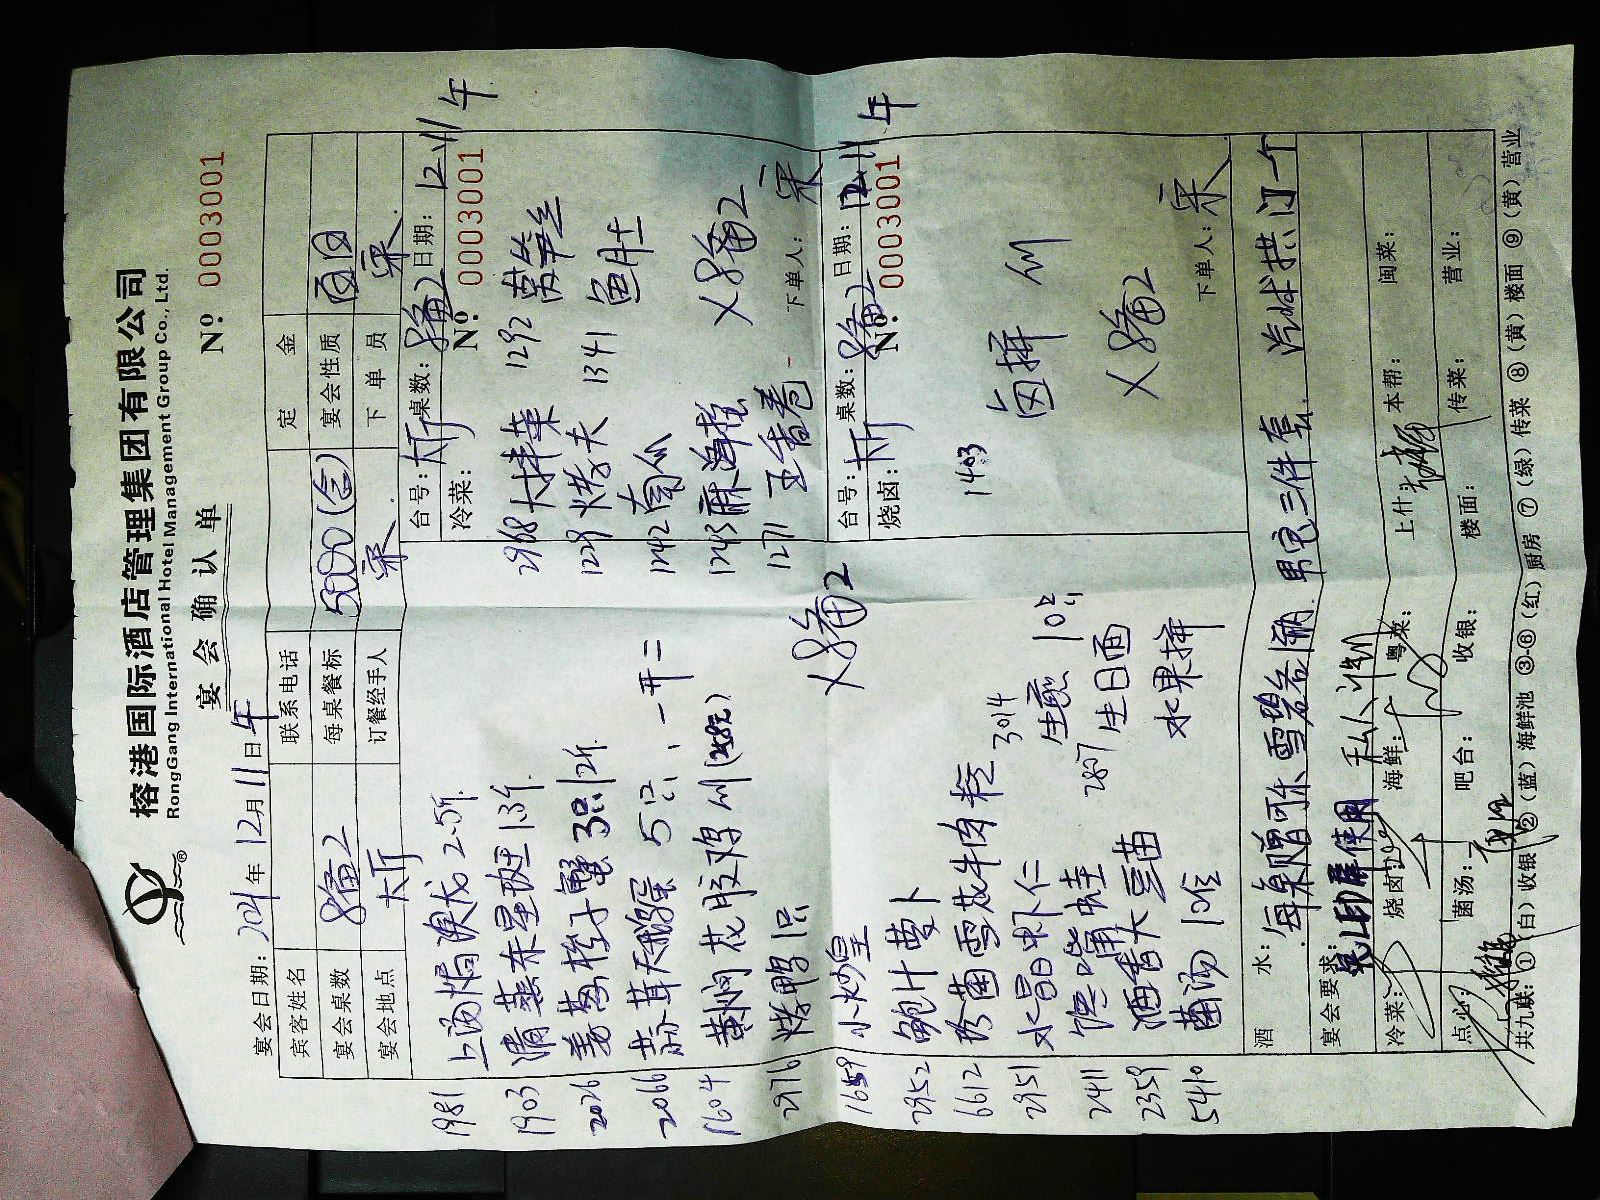 榕港国际酒店管理集团有限公司
RongGang International Hotel Management Group Co., Ltd.
宴会确认单
Nº: 0003001
宴会日期: 年12月11日午
宾客姓名 联系电话 定金
宴会桌数 8备2 每桌餐标 5000(含) 宴会性质
宴会地点 大厅 订餐经手人 宋 下单员 宋
1981 上汤焗澳龙 2.5斤
1903 清蒸东星斑 1.3斤
2026 姜葱 蟹 3只
2066 蒜茸 5只,一开二
1604 黄焖花胶鸡
2976 烤鸭1只
1659 小炒皇
2952 鲍汁萝卜
6612 雪花牛肉粒 3014
2951 水晶虾仁 生煎 10只
2411 蛙 2807 生日面
2359 酒香大豆苗 水果拼
5410 菌汤 10位
X8备2
台号:大厅 桌数:8备2 日期:12.11 午
冷菜: Nº: 0003001
2968 大拌菜 1292 莴笋丝
1229 烤夫 1341 鱼
1242 南瓜
1243 麻 海蜇
1271 五香卷
X8备2
下单人: 宋
台号:大厅 桌数:8备2 日期:12.11 午
烧卤: Nº: 0003001
1403 卤拼
X8备2
下单人: 宋
酒水: 每桌赠可乐雪碧各1瓶. 男宝三件套. 汽球拱门一个
宴会要求:
冷菜: 烧卤: 海鲜: 粤菜: 上什: 本帮: 闽菜:
点心: 菌汤: 吧台: 收银: 楼面: 传菜: 营业:
共九联:①(白)收银 ②(蓝)海鲜池 ③-⑥(红)厨房 ⑦(绿)传菜 ⑧(黄)楼面 ⑨(黄)营业